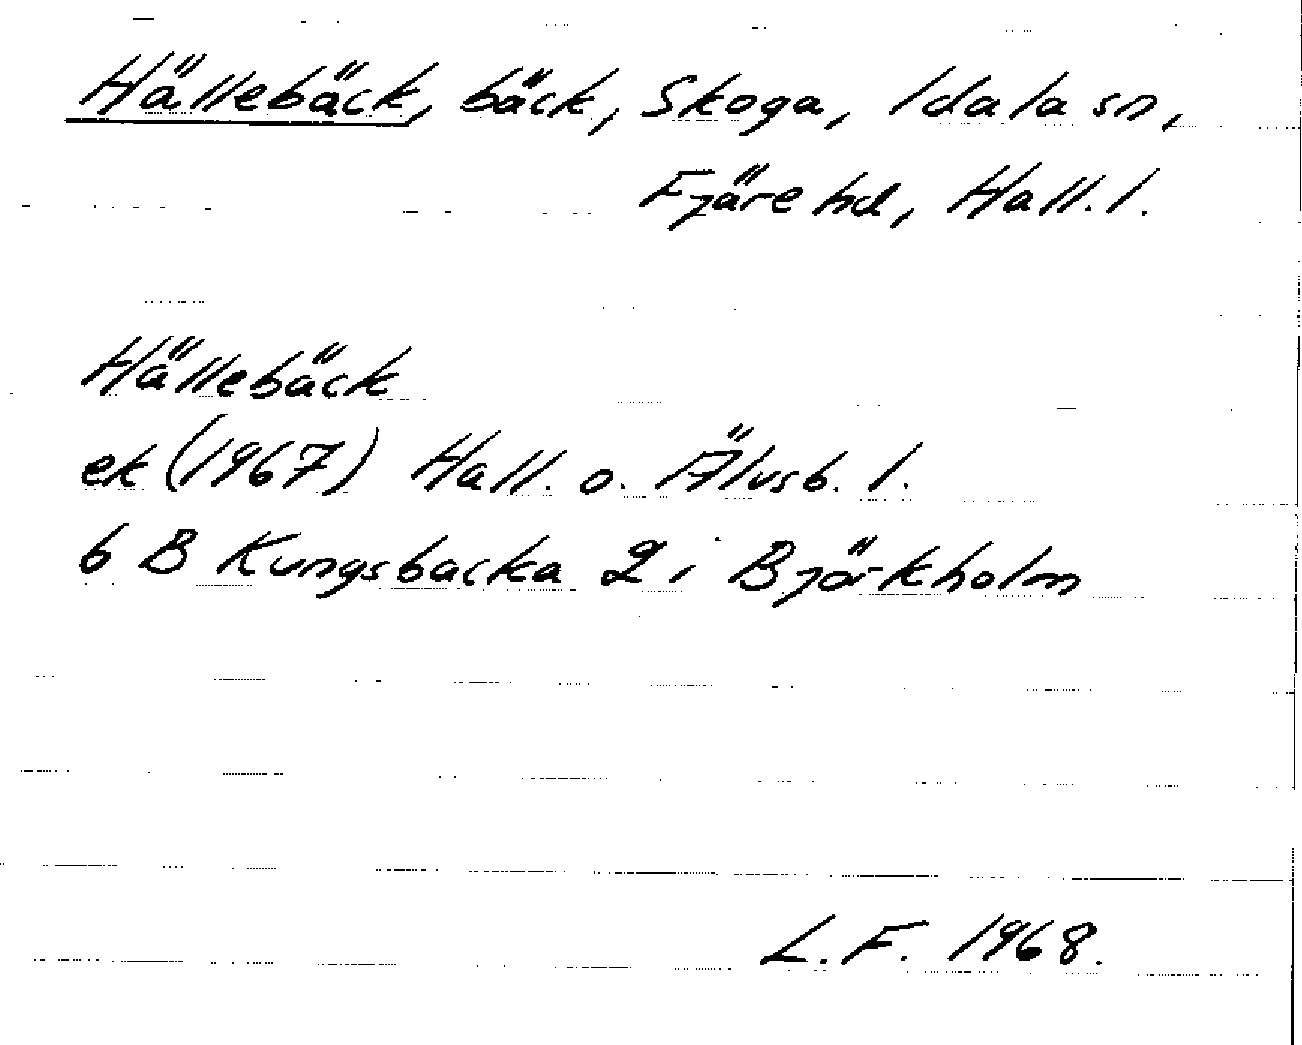 Hällebäck, bäck, Skoga, Idala sn,
Fjäre hd, Hall. l.
Hällebäck
ek (1967) Hall. o. Älvsb. l.
6 B Kungsbacka 2 i Björkholm
L. F. 1968.